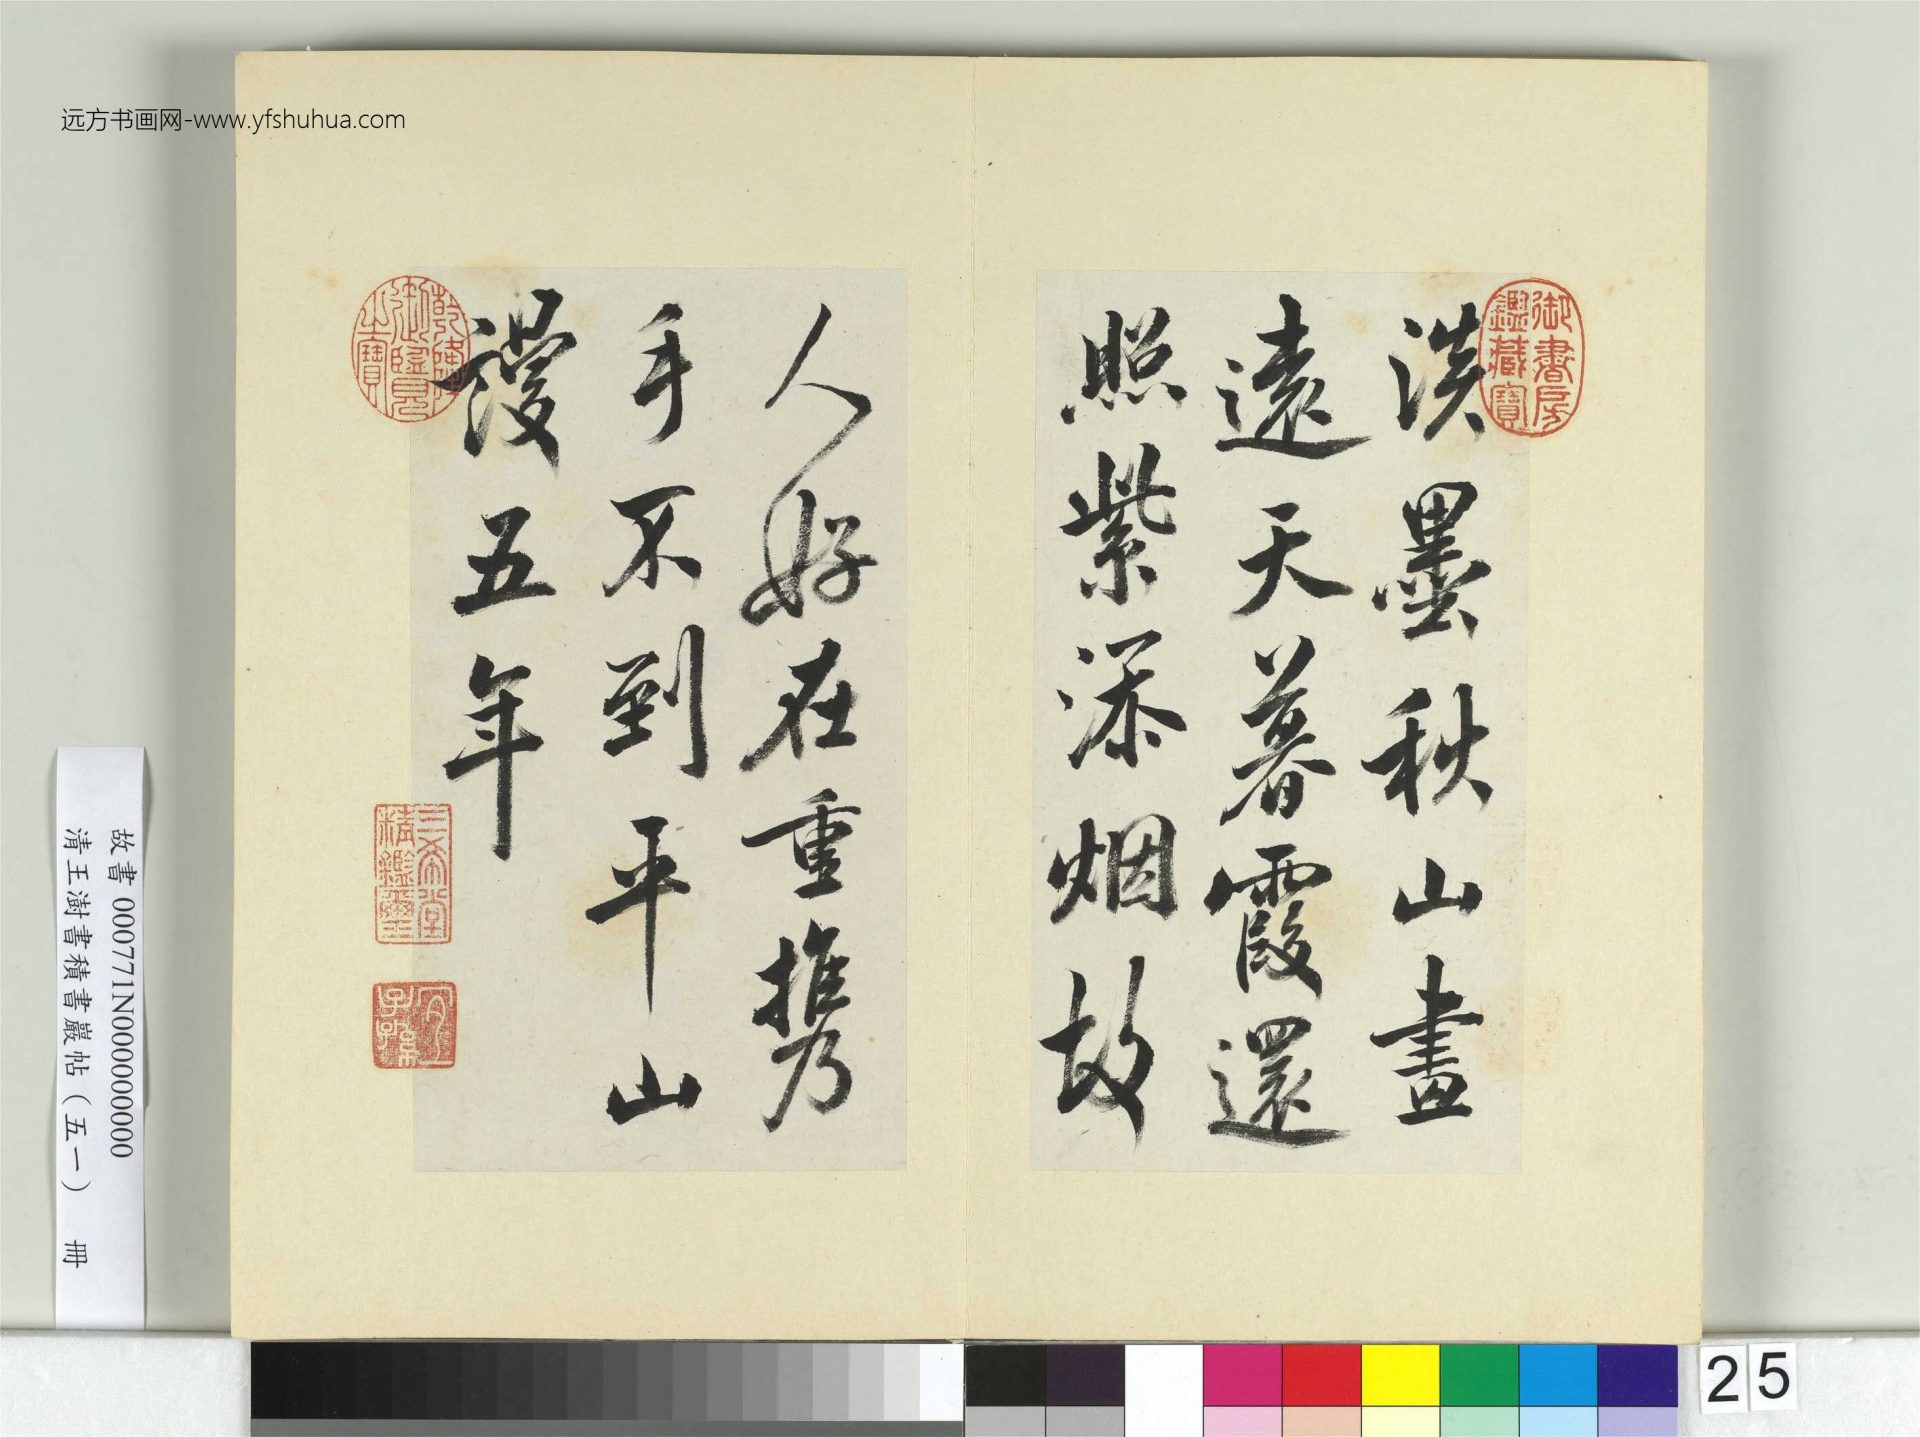 远方书画网-www.yfshuhua.com
淡墨秋山畫
遠天暮霞還
照紫添烟故
人好在重攜
手不到平山
謾五年
御書房
鑑藏寶
乾隆
御覽
之寶
三希堂
精鑑璽
宜
子孫
故書 000771N000000000
清王澍書積書巖帖(五一) 冊
25